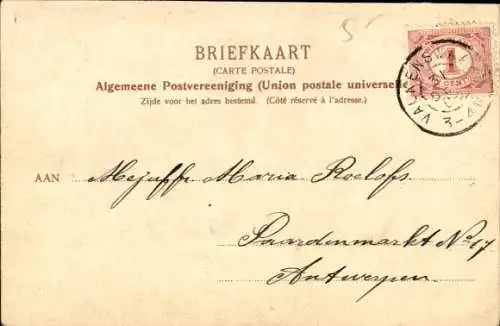 BRIEFKAART
(CARTE POSTALE)
Algemeene Postvereeniging (Union postale universel
Zijde voor het adres bestemd. (Côté réservé à l'adresse.)
1
CENT
3-4
AAN Mejuffr. Maria Roelofs
Paardenmarkt No 17
Antwerpen.